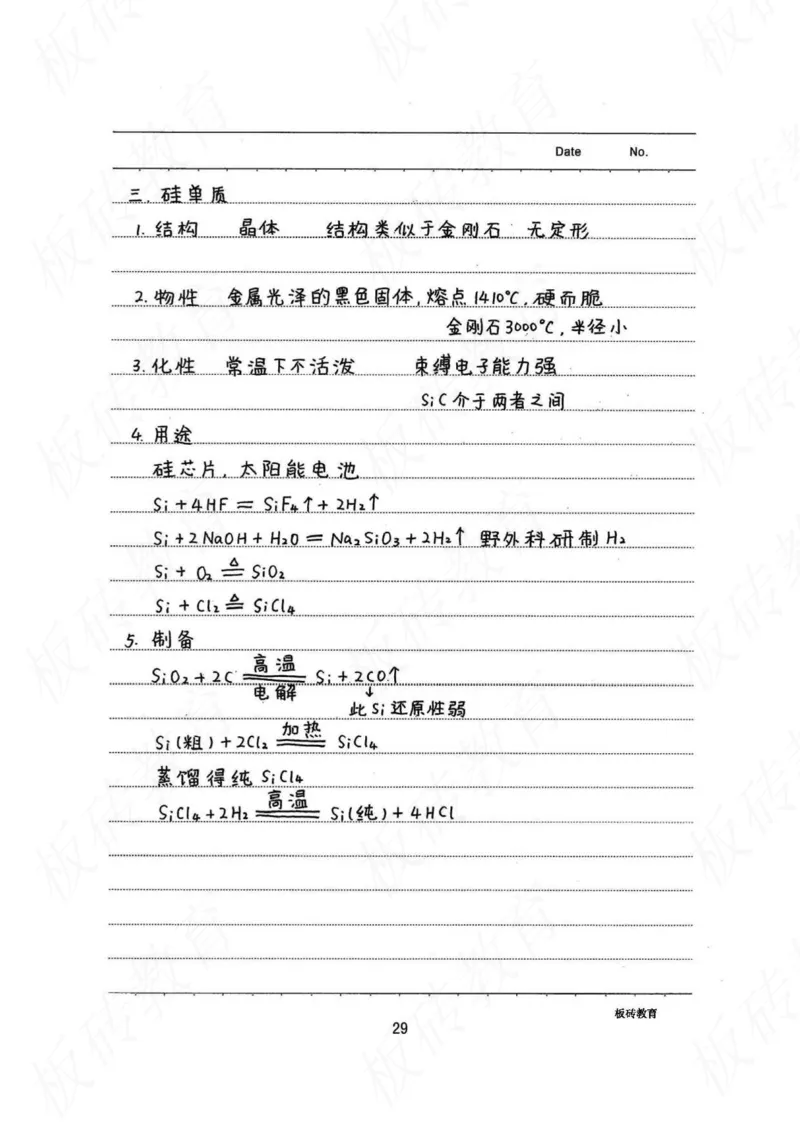 Date No.
三. 硅单质
1. 结构 晶体 结构类似于金刚石 无定形
2. 物性 金属光泽的黑色固体, 熔点1410℃, 硬而脆
金刚石3000℃, 半径小
3. 化性 常温下不活泼 束缚电子能力强
SiC介于两者之间
4. 用途
硅芯片, 太阳能电池
Si + 4HF = SiF₄↑ + 2H₂↑
Si + 2NaOH + H₂O = Na₂SiO₃ + 2H₂↑ 野外科研制H₂
Si + O₂ ≜ SiO₂
Si + Cl₂ ≜ SiCl₄
5. 制备
高温
SiO₂ + 2C ═ Si + 2CO↑
电解 ↓
此Si还原性弱
加热
Si(粗) + 2Cl₂ ═ SiCl₄
蒸馏得纯SiCl₄
高温
SiCl₄ + 2H₂ ═ Si(纯) + 4HCl
板砖教育
29